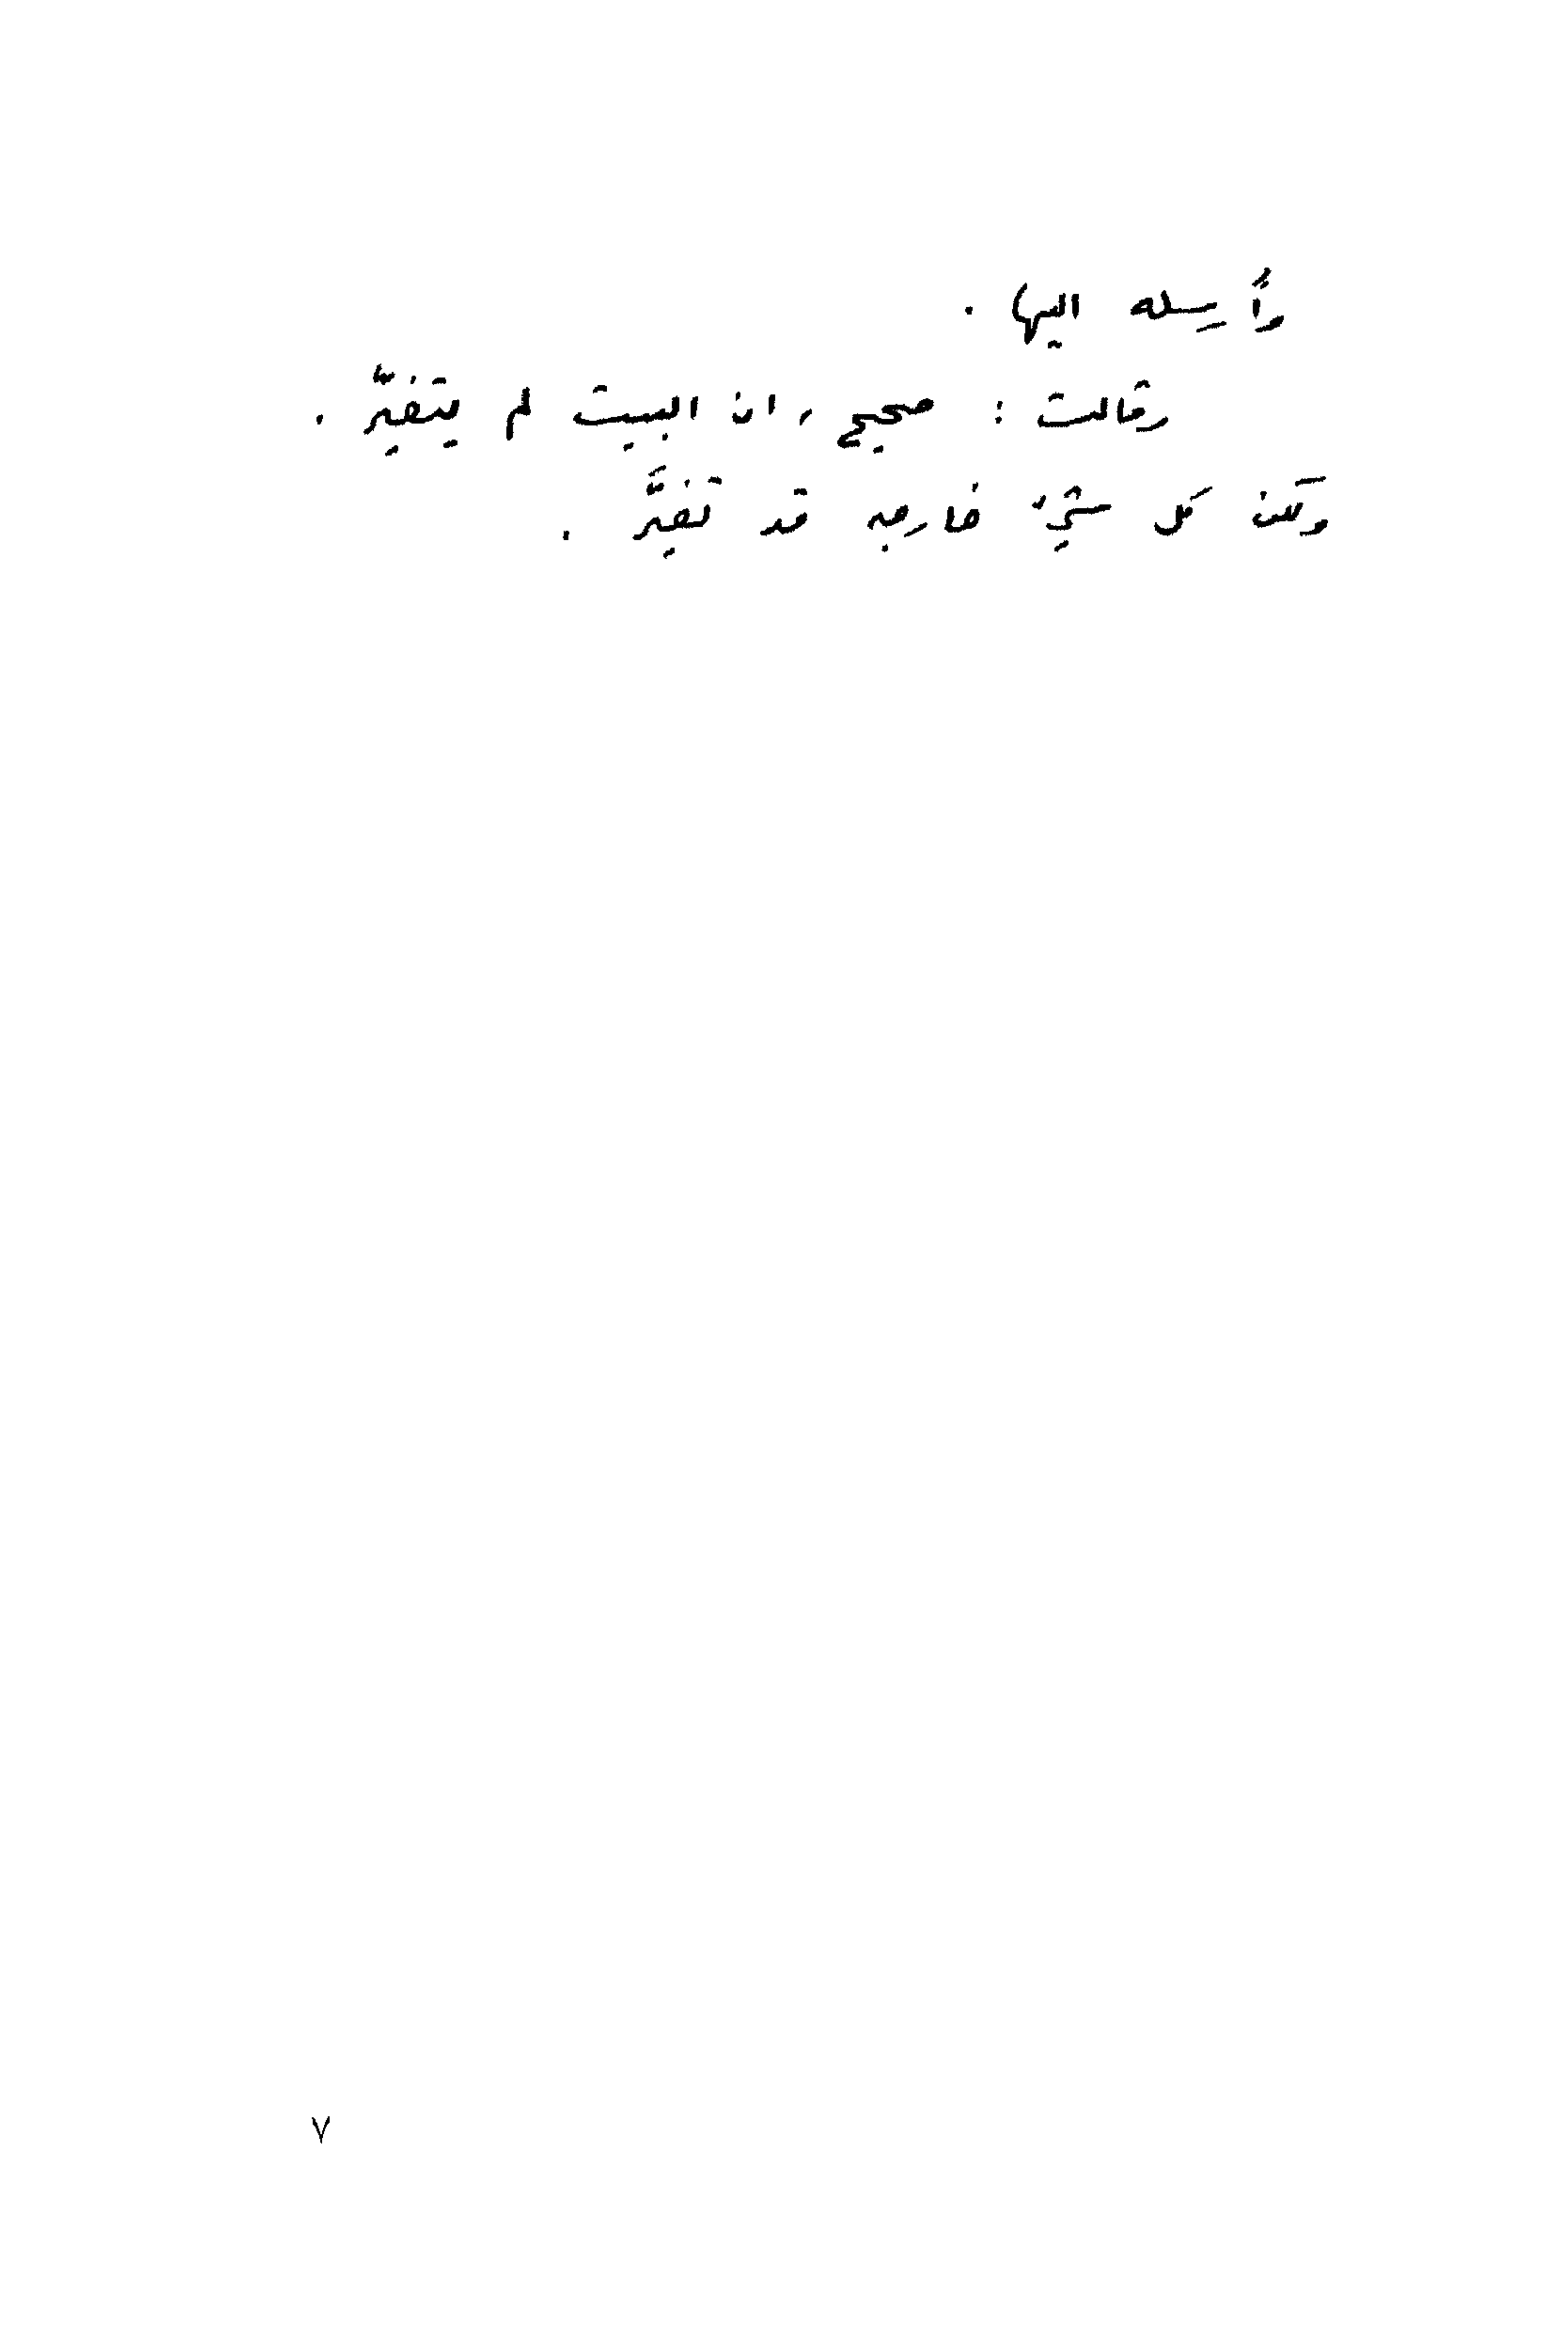 وأرسله اليها .
وقالت : صحيح ، ان البيت لم يتغيَّر .
ولكن كل شيء خارجه قد تغيَّر .
٧